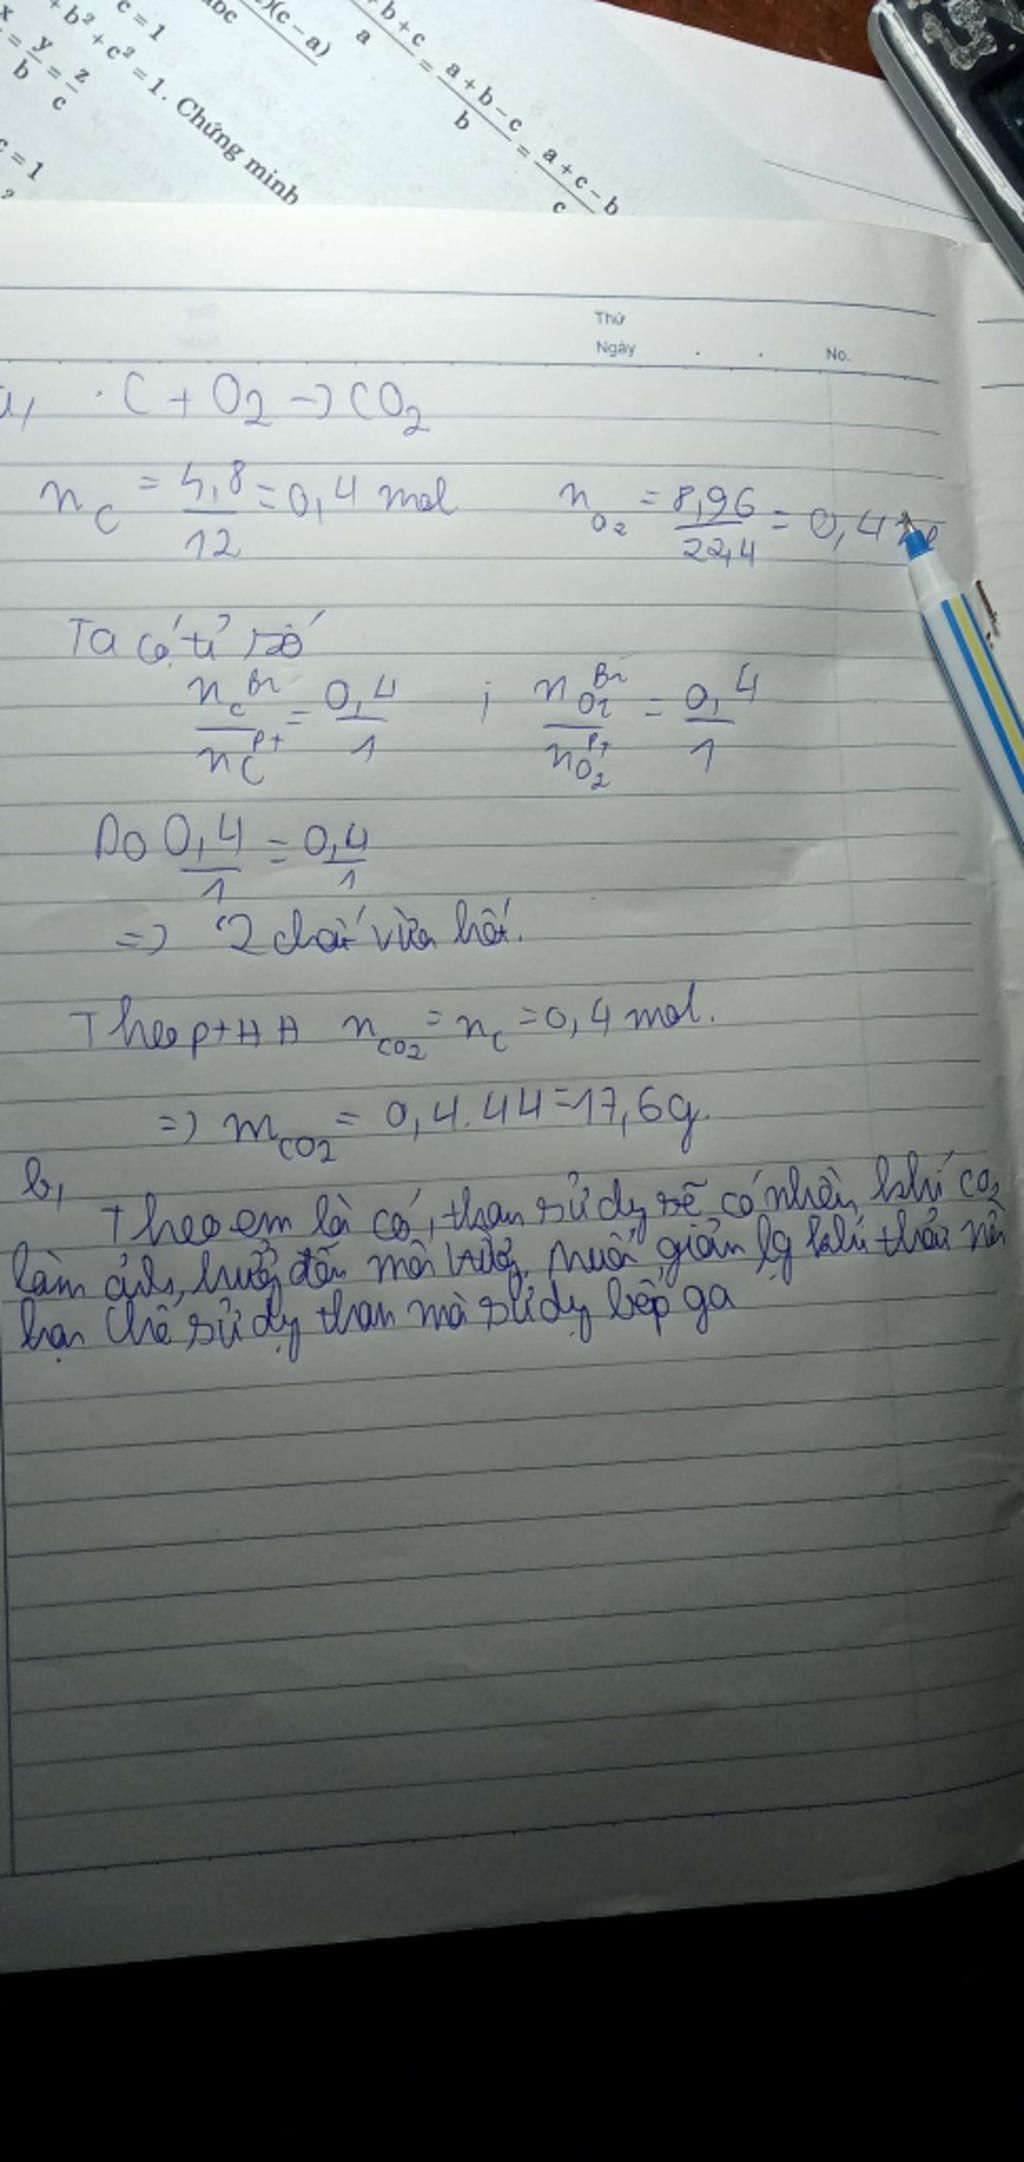 c = 1
abc
)(c – a)
+ b + c
a
= a + b – c
b
= a + c – b
c
x
= y = z
b c
+ b² + c² = 1. Chứng minh
c = 1
?
Thứ
Ngày . . No.
a, · C + O₂ → CO₂
n_C = 4,8/12 = 0,4 mol n_O₂ = 8,96/22,4 = 0,4
Ta có tỉ số
n_C^Br/n_C^pt = 0,4/1 ; n_O₂^Br/n_O₂^pt = 0,4/1
Do 0,4/1 = 0,4/1
=> 2 chất vừa hết.
Theo ptHH n_CO₂ = n_C = 0,4 mol.
=> m_CO₂ = 0,4.44 = 17,6g.
b,
Theo em là có, than sử dg sẽ có nhiều khí CO₂
làm ảnh hưởng đến môi trường, muốn giảm lg khí thải nên
hạn chế sử dg than mà sử dg bếp ga